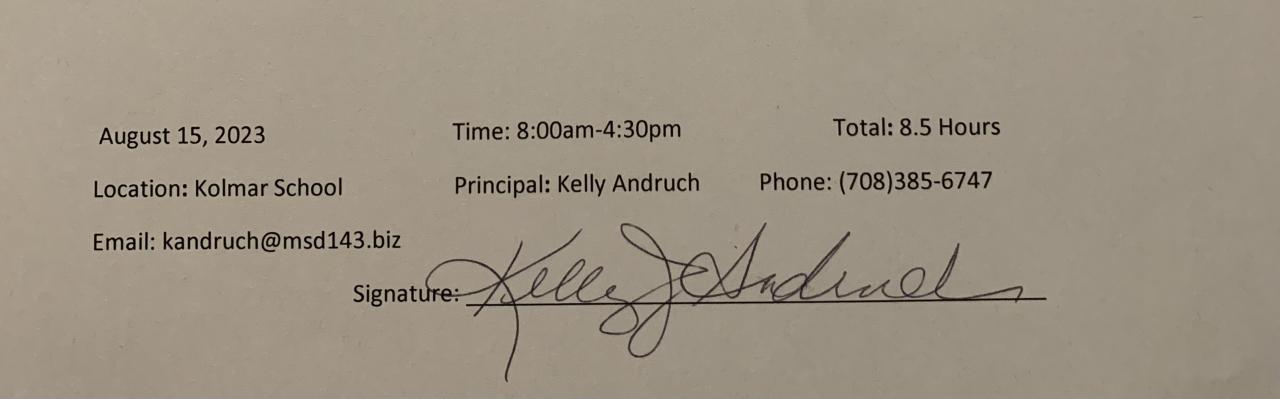 August 15, 2023 Time: 8:00am-4:30pm Total: 8.5 Hours
Location: Kolmar School Principal: Kelly Andruch Phone: (708)385-6747
Email: kandruch@msd143.biz
Signature: Kelly J Andruch